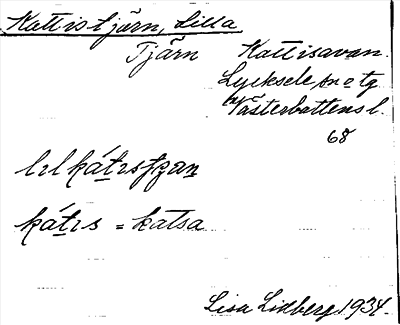 Kattistjärn, Lilla
Tjärn Kattisavan.
Lycksele sn o tg
Västerbottens l.
68
kát̲ıs = katsa
Lisa Lidberg 1934.